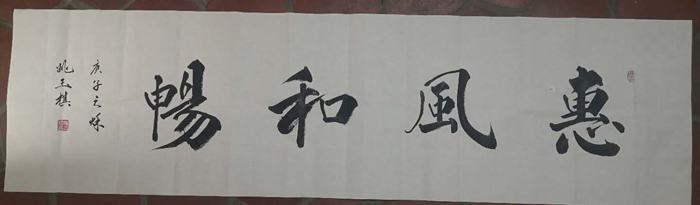 惠風和暢
庚子之秌
姚玉棋